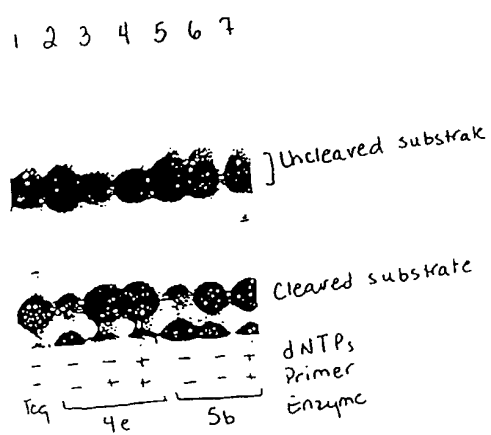 1 2 3 4 5 6 7
Uncleaved substrate
Cleaved substrate
- - - + - - + dNTPs
- - + + - - + Primer
Taq 4e 5b Enzyme